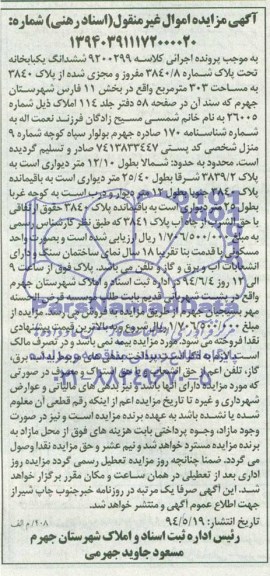 آگهی مزایده اموال غیرمنقول(اسناد رهنی) شماره:
۱۳۹۴۰۳۹۱۱۱۷۲۰۰۰۰۲۰
به موجب پرونده اجرائی کلاسه ۹۲۰۰۲۹۹ ششدانگ یکبابخانه
تحت پلاک شماره ۳۸۴۰/۸ مفروز و مجزی شده از پلاک ۳۸۴۰
به مساحت ۳۰۳ مترمربع واقع در بخش ۱۱ فارس شهرستان
جهرم که سند آن در صفحه ۵۸ دفتر جلد ۱۱۴ املاک ذیل شماره
۲۶۰۰۵ به نام خانم شمسی مسیح زادگان فرزند نعمت اله به
شماره شناسنامه ۱۷۰ صادره جهرم بولوار سپاه کوچه شماره ۹
منزل شخصی کد پستی ۷۴۱۳۸۳۳۴۴۷ صادر و تسلیم گردیده
است. محدود به حدود: شمالا بطول ۱۲/۱۰ متر دیواری است به
پلاک ۳۸۳۹/۲ شرقا بطول ۲۵/۴۰ متر دیواری است به باقیمانده
پلاک ۳۸۴۰ جنوبا بطول ۱۲ متر دیوار و درب است به کوچه غربا
بطول ۲۵ متر دیواری است به باقیمانده پلاک ۳۸۴۰ حقوق ارتفاقی
با حق الشرب از چاه آب پلاک ۳۸۴۱ که طبق نظر کارشناس رسمی
به مبلغ ۱/۷۰۶/۵۰۰/۰۰۰ ریال ارزیابی شده است و بصورت واحد
مسکونی با قدمت بنا تقریبا ۱۸ سال نمای ساختمان سنگ دارای
انشعابات آب و برق و گاز و تلفن می باشد. پلاک فوق از ساعت ۹
الی ۱۲ روز ۹۴/۶/۴ در اداره ثبت اسناد و املاک شهرستان جهرم
مبلغ ۱/۷۰۶/۵۰۰/۰۰۰ ریال شروع و به بالاترین قیمت پیشنهادی
نقدا فروخته می شود، مورد مزایده بیمه نمی باشد و در تصرف مالک
است
گاز، تلفن اعم از حق انشعاب و یا حق اشتراک و مصرف در صورتی
که مورد مزایده دارای آنها باشد و نیز بدهی های مالیاتی و عوارض
شهرداری و غیره تا تاریخ مزایده اعم از اینکه رقم قطعی آن معلوم
شده یا نشده باشد به عهده برنده مزایده است و نیز در صورت
وجود مازاد، وجوه پرداختی بابت هزینه های فوق از محل مازاد به
برنده مزایده مسترد خواهد شد و نیم عشر و حق مزایده نقدا وصول
می گردد. ضمنا چنانچه روز مزایده تعطیل رسمی گردد مزایده روز
اداری بعد از تعطیلی در همان ساعت و مکان مقرر برگزار خواهد
شد. این آگهی صرفا یک مرتبه در روزنامه خبرجنوب چاپ شیراز
جهت اطلاع عموم آگهی و منتشر خواهد شد.
تاریخ انتشار: ۹۴/۵/۱۹ ۲۰۸/م الف
رئیس اداره ثبت اسناد و املاک شهرستان جهرم
مسعود جاوید جهرمی
ParsNamadData
۰۲۱-۸۸۳۴۹۶۷۰-۵